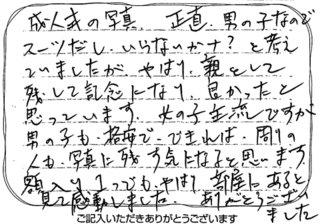 成人式の写真、正直、男の子なので
スーツだし、いらないかナ？と考え
ていましたが、やはり、親として
残して記念になり、良かったと
思っています。女の子主流ですが
男の子も、格安で、できれば、周りの
人も、写真に残す気になると思います。
額入り1つでも、やはり、部屋にあると
見て感動しました。ありがとうござい
ました
ご記入いただきありがとうございます